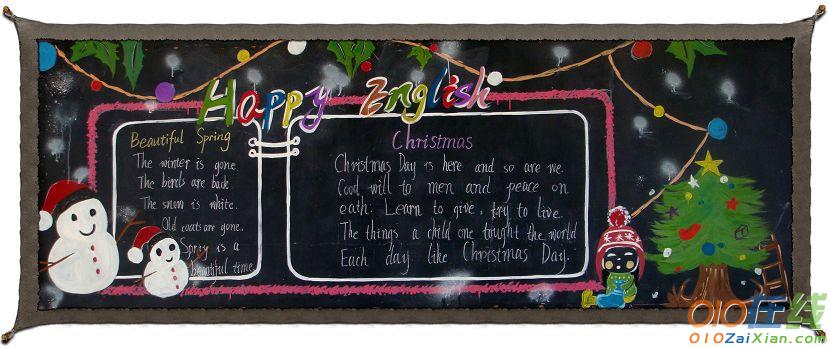 Happy English
Beautiful Spring
The winter is gone.
The birds are back
The snow is white.
Old coats are gone.
Spring is a
beautiful time
Christmas
Christmas Day is here and so are we.
Good will to men and peace on
eath: Learn to give, try to live.
The things a child one tought the world
Each day like Christmas Day.
010在线
010ZaiXian.com